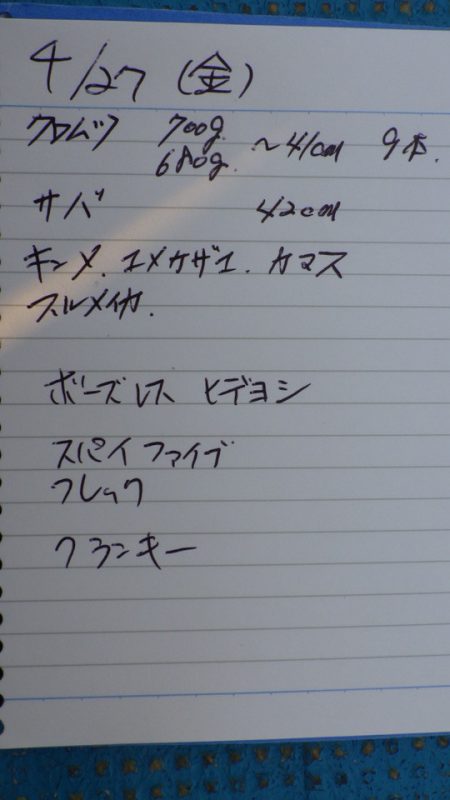 4/27 (金)
クロムツ 700g 680g ~41cm 9本.
サバ 42cm
キンメ. ユメカザゴ. カマス
スルメイカ.
ボーズレス ヒデヨシ
スパイファイブ
フレック
クランキー